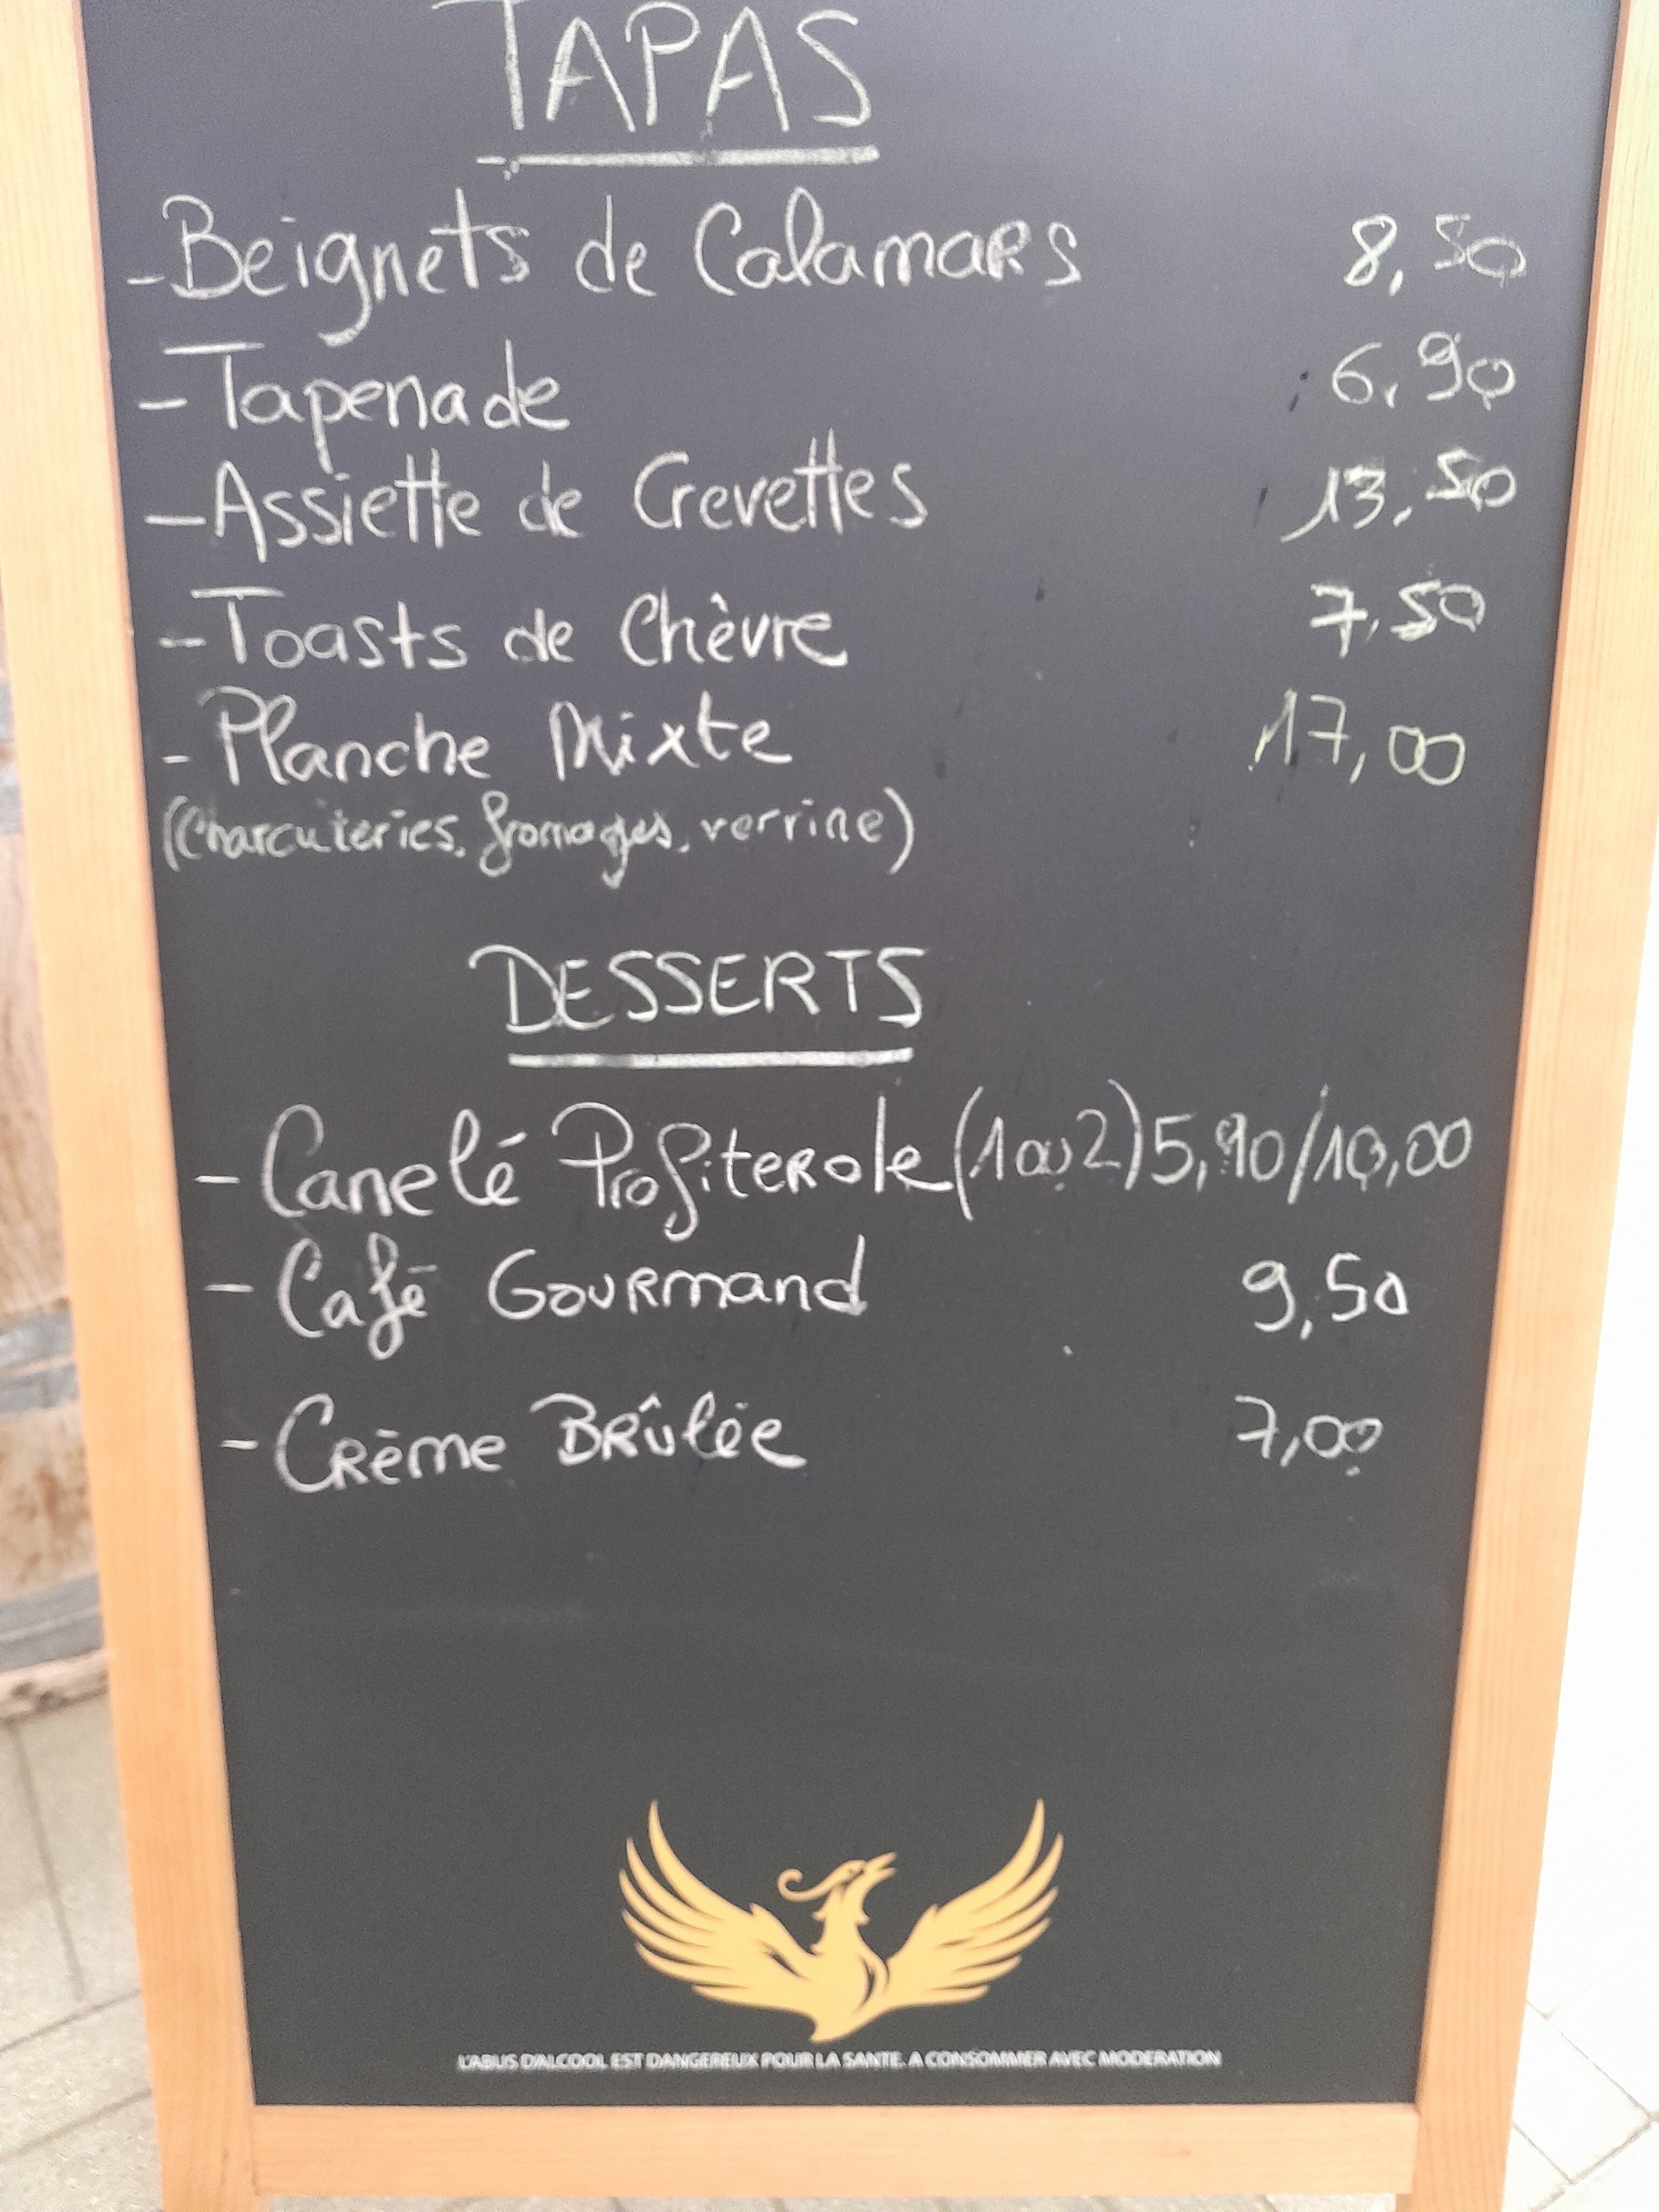 TAPAS
- Beignets de Calamars 8,50
- Tapenade 6,90
- Assiette de Crevettes 13,50
- Toasts de Chèvre 7,50
- Planche Mixte 17,00
(Charcuteries, fromages, verrine)
DESSERTS
- Canelé Profiterole (1 ou 2) 5,90/10,00
- Café Gourmand 9,50
- Crème Brûlée 7,00
L'ABUS D'ALCOOL EST DANGEREUX POUR LA SANTE. A CONSOMMER AVEC MODERATION